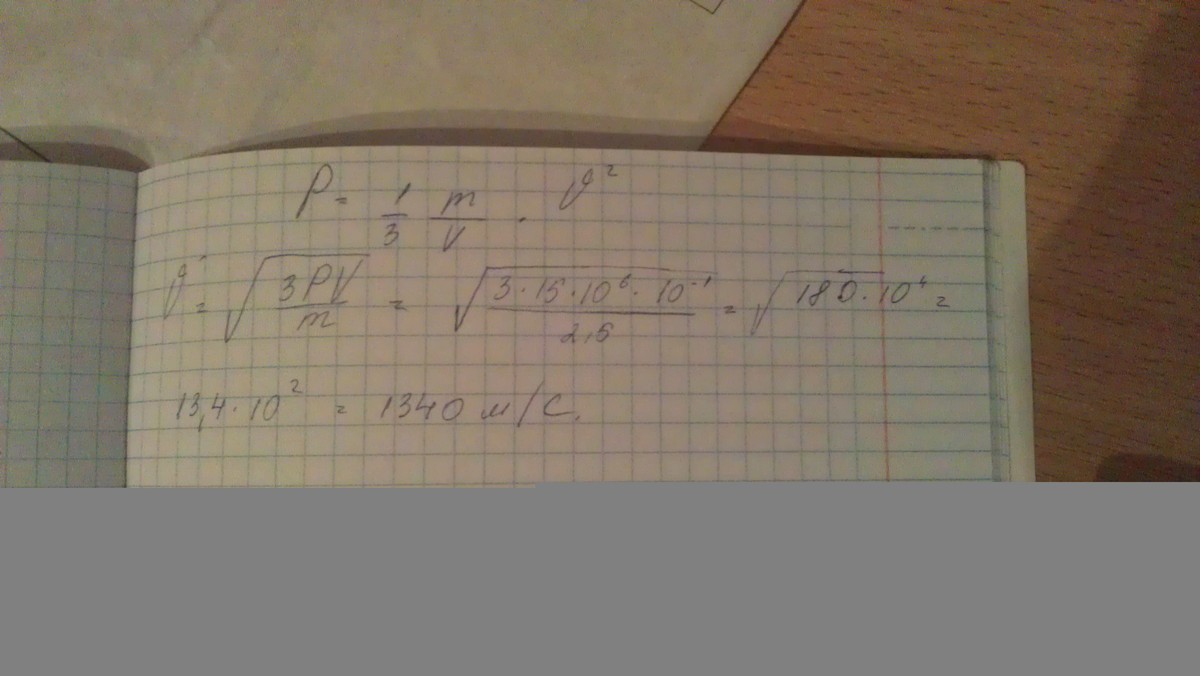 P = 1/3 m/V · υ²
υ = √(3PV/m) = √(3·15·10⁶·10⁻¹/2,5) = √(180·10⁴) =
13,4·10² = 1340 м/с.